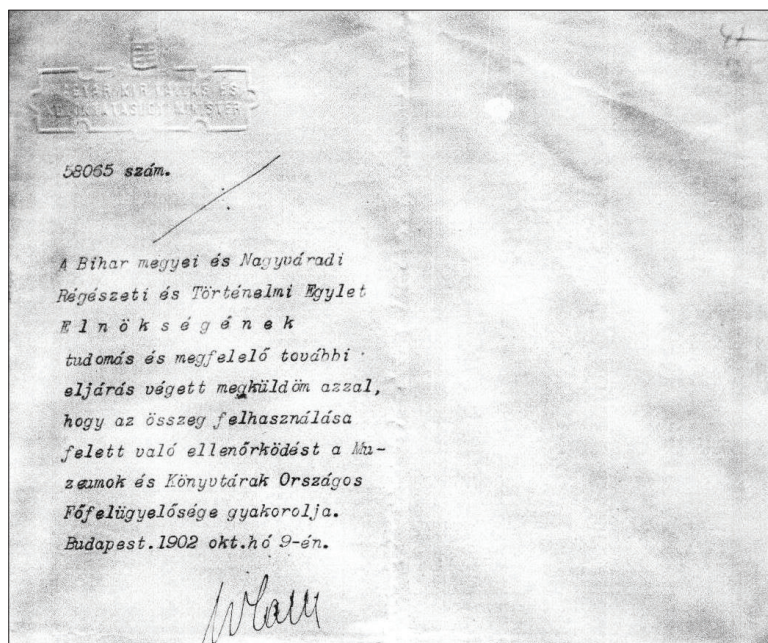 MAGYAR KIR VALLÁS ÉS
KÖZOKTATÁSÜGYI MINISTER
58065 szám.
A Bihar megyei és Nagyváradi
Régészeti és Történelmi Egylet
Elnökségének
tudomás és megfelelő további
eljárás végett megküldöm azzal,
hogy az összeg felhasználása
felett való ellenőrködést a Mu-
zeumok és Könyvtárak Országos
Főfelügyelősége gyakorolja.
Budapest.1902 okt.hó 9-én.